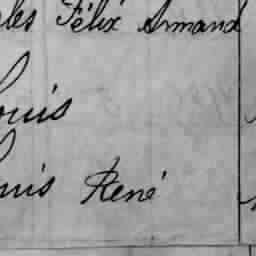 les Félix Armand
Louis
Louis René